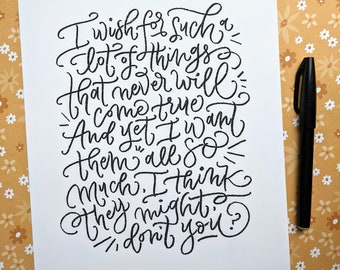 I wish for such a
lot of things
that never will
come true
And yet I want
them all so
much. I think
they might,
don't you?